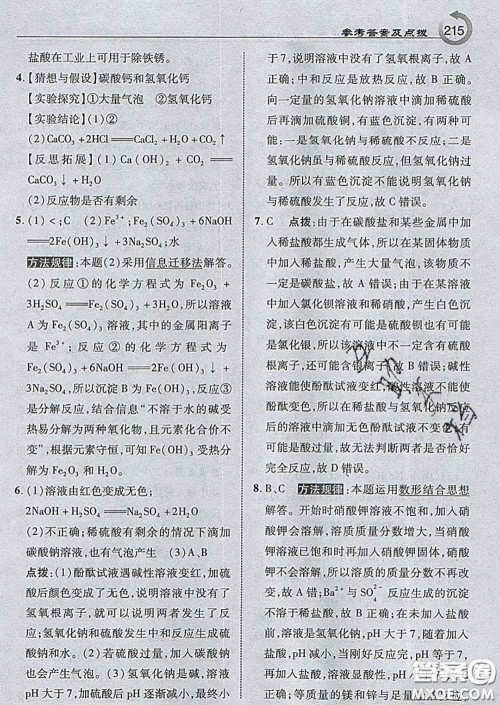 参考答案及点拨
215
盐酸在工业上可用于除铁锈。
4. 【猜想与假设】碳酸钙和氢氧化钙
【实验探究】①大量气泡 ②氢氧化钙
【实验结论】(1)②
(2)CaCO₃+2HCl══CaCl₂+H₂O+CO₂↑
【反思拓展】(1)Ca(OH)₂+CO₂══
CaCO₃↓+H₂O
(2)反应物是否有剩余
5. (1)<;C (2)Fe³⁺;Fe₂(SO₄)₃+6NaOH
══2Fe(OH)₃↓+3Na₂SO₄;水
方法规律:本题(2)采用信息迁移法解答。
(2)反应①的化学方程式为Fe₂O₃+
3H₂SO₄══Fe₂(SO₄)₃+3H₂O,所以溶液
A为Fe₂(SO₄)₃溶液,其中的金属阳离子
是Fe³⁺;反应②的化学方程式为
Fe₂(SO₄)₃+6NaOH══2Fe(OH)₃↓+
3Na₂SO₄,所以沉淀B为Fe(OH)₃;反应③
是分解反应,根据信息“不溶于水的碱受
热易分解为两种氧化物,且元素化合价不
变”,根据元素守恒可知,红色固体应为
Fe₂O₃和H₂O。
6. (1)溶液由红色变成无色;
2NaOH+H₂SO₄══Na₂SO₄+2H₂O
(2)不正确;稀硫酸有剩余的情况下滴加
碳酸钠溶液,也有气泡产生 (3)A、B
点拨:(1)酚酞试液遇碱性溶液变红,加
硫酸后颜色消失,说明溶液中已没有了
氢氧根离子,可以说明两者发生了反应。
氢氧化钠与硫酸发生中和反应生成硫
酸钠和水。(2)若滴加硫酸过量,过量的
硫酸也能与碳酸钠反应产生气泡。
(3)反应前氢氧化钠溶液呈碱性,溶液
pH大于7,加硫酸后pH逐渐减小,最终
于7,说明溶液中已没有了氢氧根离子,
即二者已发生了中和反应,故A正确。
不加其他试剂,混合后溶液温度升高,
说明两种溶液发生反应,故B正确。
向一定量的氢氧化钠溶液中滴加稀硫酸
后再滴加硫酸铜,有蓝色沉淀,有两种可
能:氢氧化钠与稀硫酸不反应;二是
氢氧化钠虽与稀硫酸反应,但氢氧化钠过
量。所以有蓝色沉淀不能说明氢氧化钠
与硫酸不反应,故C错误。
7. C 点拨:由于在碳酸盐和某些金属中加
入稀盐酸都生成气体,所以在某固体物质
中加入稀盐酸,产生大量气泡。该固体不
一定是碳酸盐,故A错误;由于在溶液中
加入氯化钡溶液和稀硝酸,产生白色沉
淀,该白色沉淀可能是硫酸钡也有可能
是氯化银。所以该溶液不一定含有硫酸
根离子,还可能含有银离子,故B错误;碱性
溶液能使酚酞试液变红,酸性溶液不能使
酚酞变色,故C正确;由于在氢氧化钠溶
液中滴入稀盐酸与氢氧化钠反应后的
溶液中滴加无色酚酞试液不变色,可能
稀盐酸过量,故无法判断两者是否恰好
完全反应,故D错误。
8. B、C 方法规律:本题运用数形结合思想
解答。开始时硝酸钾溶液不饱和,加入硝
酸钾会溶解,溶质质量分数增大,当硝酸
钾溶液饱和后,再加入硝酸钾固体,硝酸
钾不会溶解,溶质质量分数不再发生改
变,故A正确;Ba²⁺与SO₄²⁻反应会生成
白色沉淀,故B错误;在未加入盐酸前,
由于溶液呈碱性,pH大于7,随着盐酸的
加入,pH减小,当恰好反应时,pH等于
7,继续加入盐酸,溶液呈酸性,pH小于
7,故C错误;等质量的镁和锌与足量的
答案圈
MXQE.COM